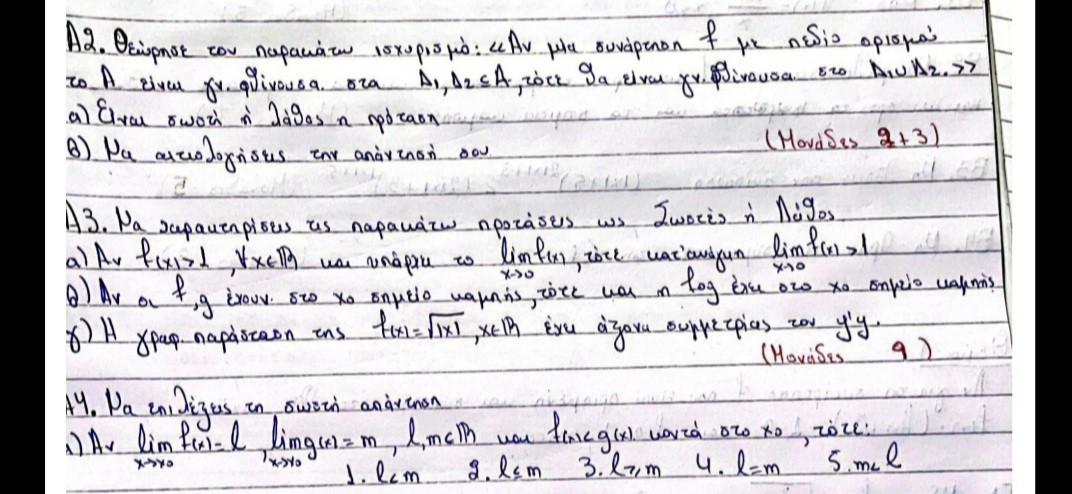 Α2. Θεώρησε τον παρακάτω ισχυρισμό: «Αν μια συνάρτηση f με πεδίο ορισμού
το Α είναι γν. φθίνουσα στα Δ₁, Δ₂ ⊆ Α, τότε θα είναι γν. φθίνουσα στο Δ₁∪Δ₂.»
α) Είναι σωστή ή λάθος η πρόταση
β) Να αιτιολογήσεις την απάντησή σου
(Μονάδες 2+3)
Α3. Να χαρακτηρίσεις τις παρακάτω προτάσεις ως Σωστές ή Λάθος
α) Αν f(x)>1, ∀x∈ℝ και υπάρχει το lim f(x), τότε κατ'ανάγκη lim f(x)>1
x→0 x→0
β) Αν οι f,g έχουν στο x₀ σημείο καμπής, τότε και η fog έχει στο x₀ σημείο καμπής
γ) Η γραφ. παράσταση της f(x)=√|x|, x∈ℝ έχει άξονα συμμετρίας τον y'y.
(Μονάδες 9)
Α4. Να επιλέξεις τη σωστή απάντηση
) Αν lim f(x)=l, lim g(x)=m, l,m∈ℝ και f(x)<g(x) κοντά στο x₀, τότε:
x→x₀ x→x₀
1. l<m 2. l≤m 3. l≥m 4. l=m 5. m<l